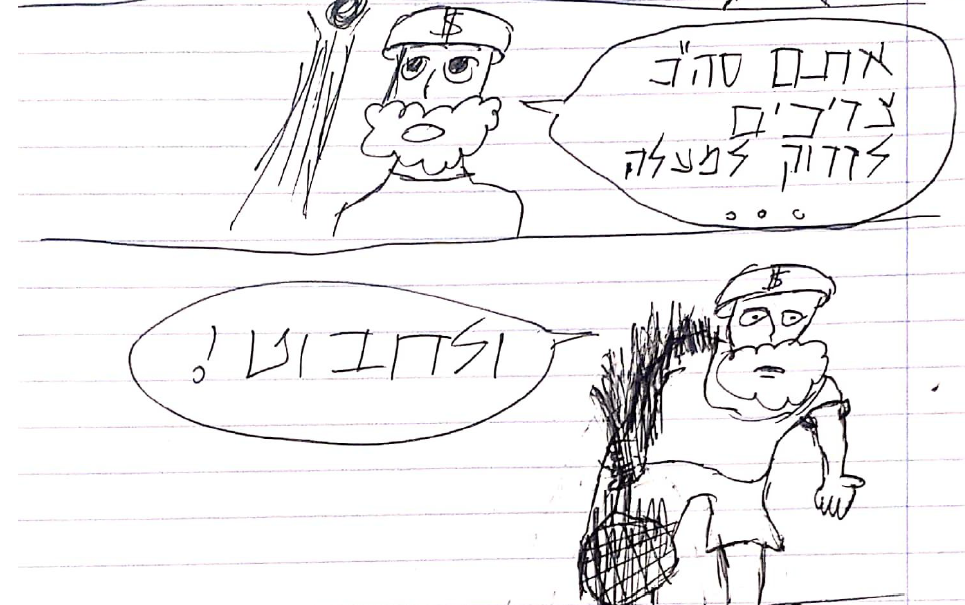 $
אתם סה"כ
צריכים
לזרוק למעלה
...
$
ולחבוט!